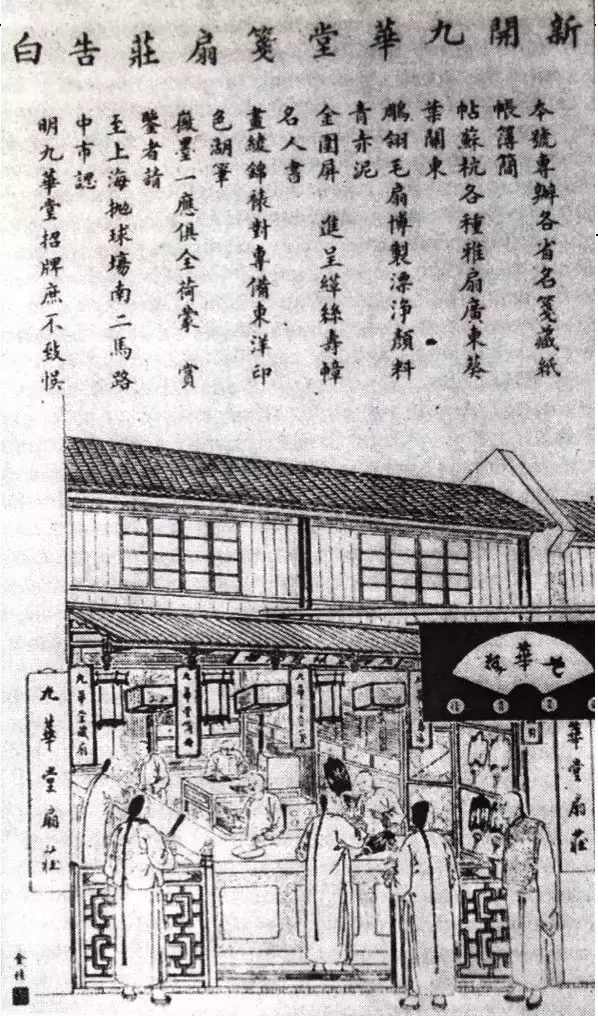 新開九華堂箋扇莊告白
本號專辦各省名箋藏紙
帳簿簡
帖蘇杭各種雅扇廣東葵
葉關東
鵰翎毛扇博製漂淨顏料
青赤泥
金圍屏 進呈緙絲壽幛
名人書
畫綾錦裱對專備東洋印
色湖筆
徽墨一應俱全荷蒙 賞
鑒者請
至上海拋球塲南二馬路
中市認
明九華堂招牌庶不致悞
華堂扇莊
九華堂
九華堂
九華堂
九華堂扇莊